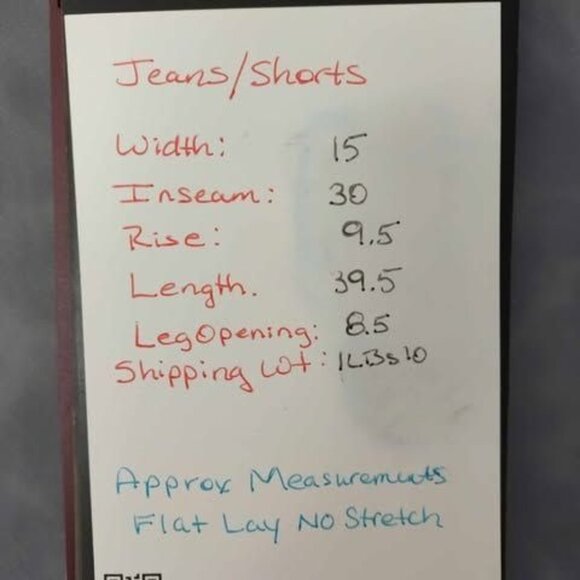 Jeans/Shorts
Width: 15
Inseam: 30
Rise: 9.5
Length. 39.5
Leg Opening: 8.5
Shipping Wt: 1LBs10
Approx Measurements
Flat Lay No Stretch